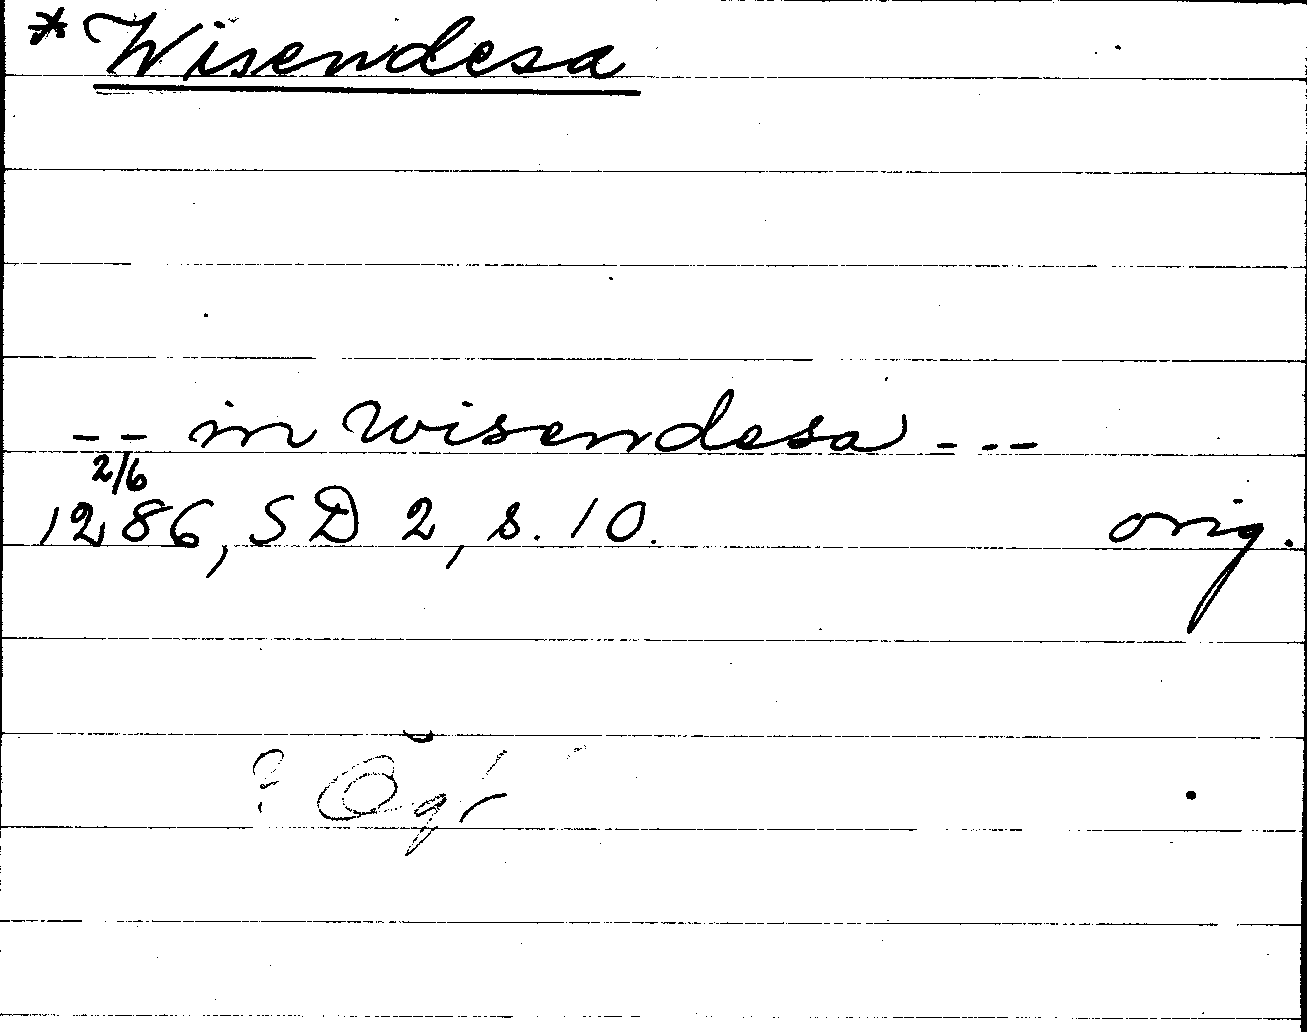 *Wisendesa
-- in Wisendesa ---
2/6
1286, SD 2, s. 10. orig.
?